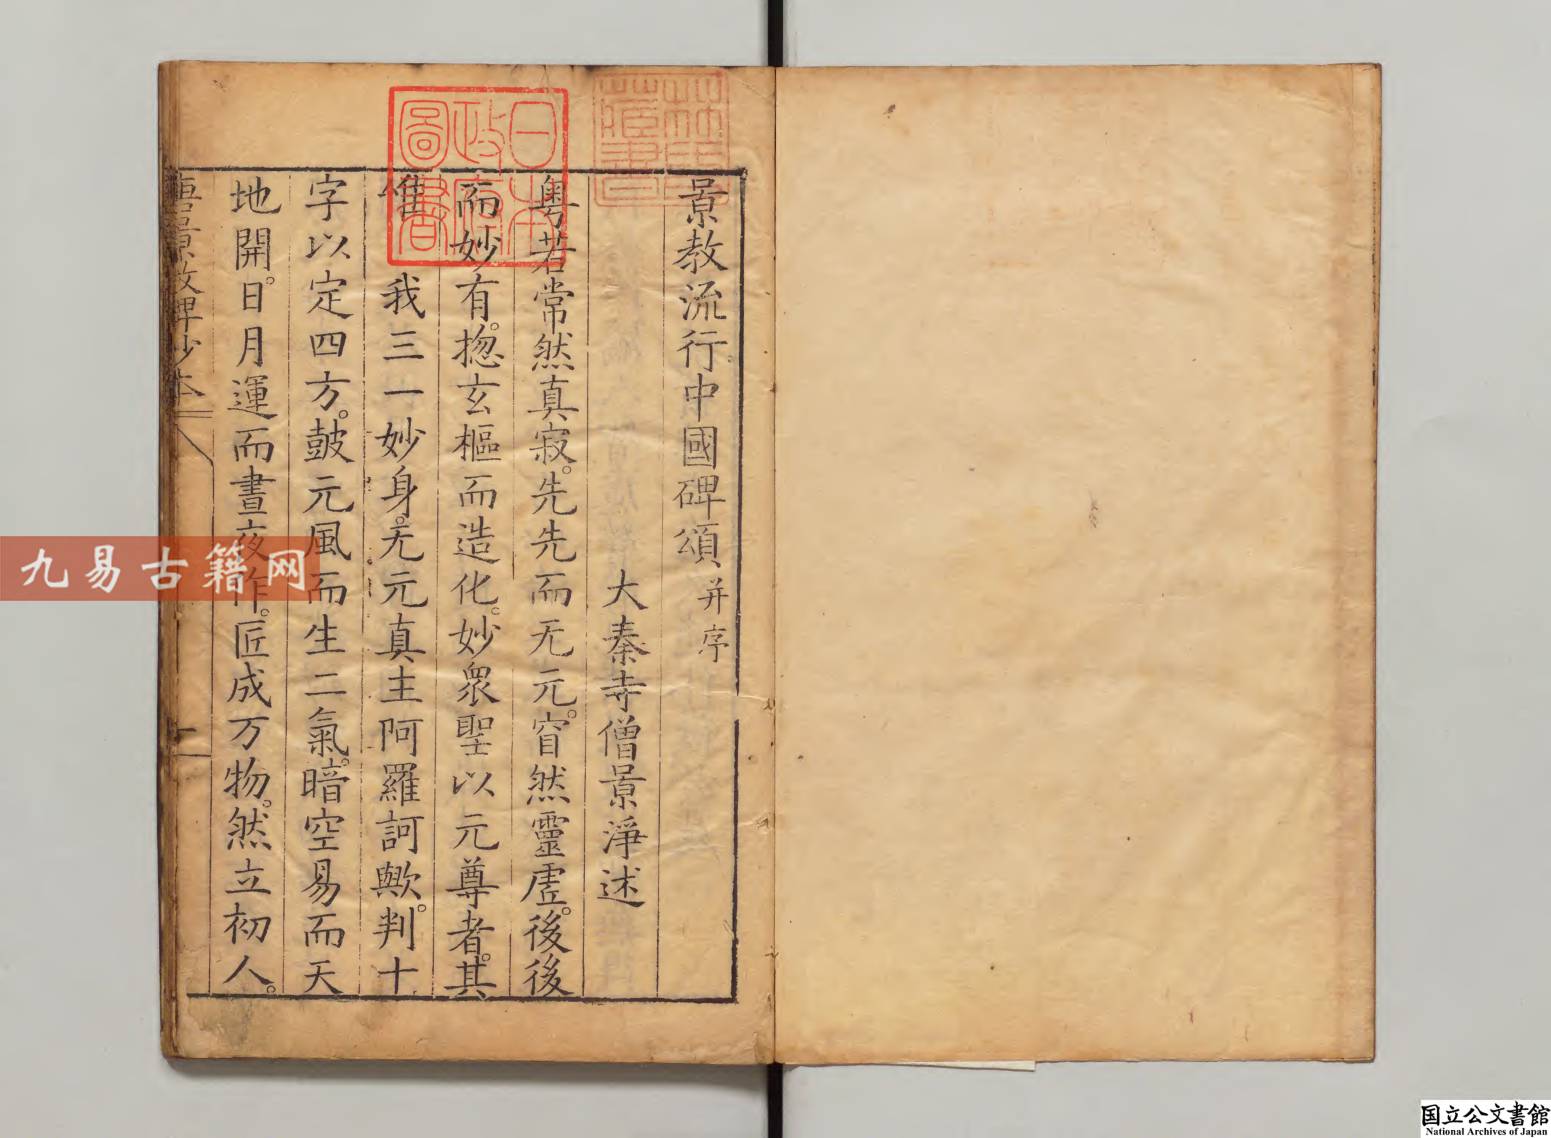 景教流行中國碑頌并序
大秦寺僧景淨述
粵若常然真寂。先先而无元。窅然靈虛。後後
而妙有。揔玄樞而造化。妙眾聖以元尊者。其
惟我三一妙身。无元真主阿羅訶歟。判十
字以定四方。鼓元風而生二氣。暗空易而天
地開。日月運而晝夜作。匠成万物。然立初人。
唐景教碑抄本
一
日本
政府
圖書
九易古籍网
国立公文書館
National Archives of Japan